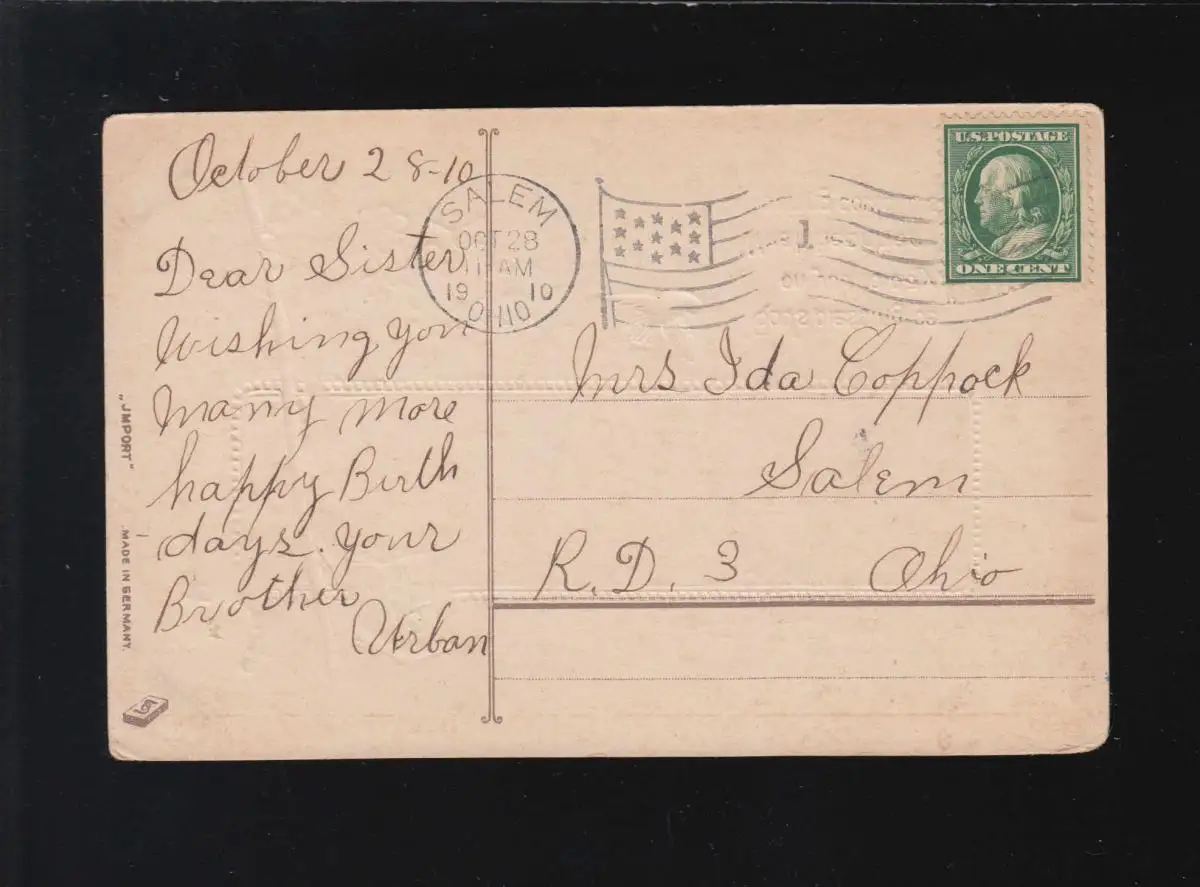 October 28-10
Dear Sister
Wishing you
Many more
happy Birth
days. Your
Brother
Urban
SALEM
OCT 28
11 AM
19 10
OHIO
1
U.S. POSTAGE
ONE CENT
Mrs Ida Coppock
Salem
R. D. 3 Ohio
„JMPORT"
MADE IN GERMANY.